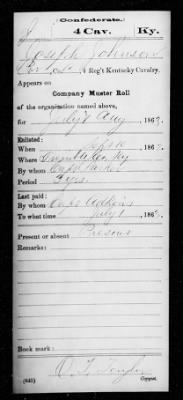 Confederate.
J 4 Cav. Ky.
Joseph Johnson
, 4 Reg't Kentucky Cavalry.
Appears on
Company Muster Roll
of the organization named above,
for July & Aug, 1863.
Enlisted:
When
Where Ky
By whom Capt
Period 3 yrs
Last paid:
By whom Capt Adkins
To what time July 1, 186
Present or absent Present
Remarks:
Book mark:
(642) Copyist.